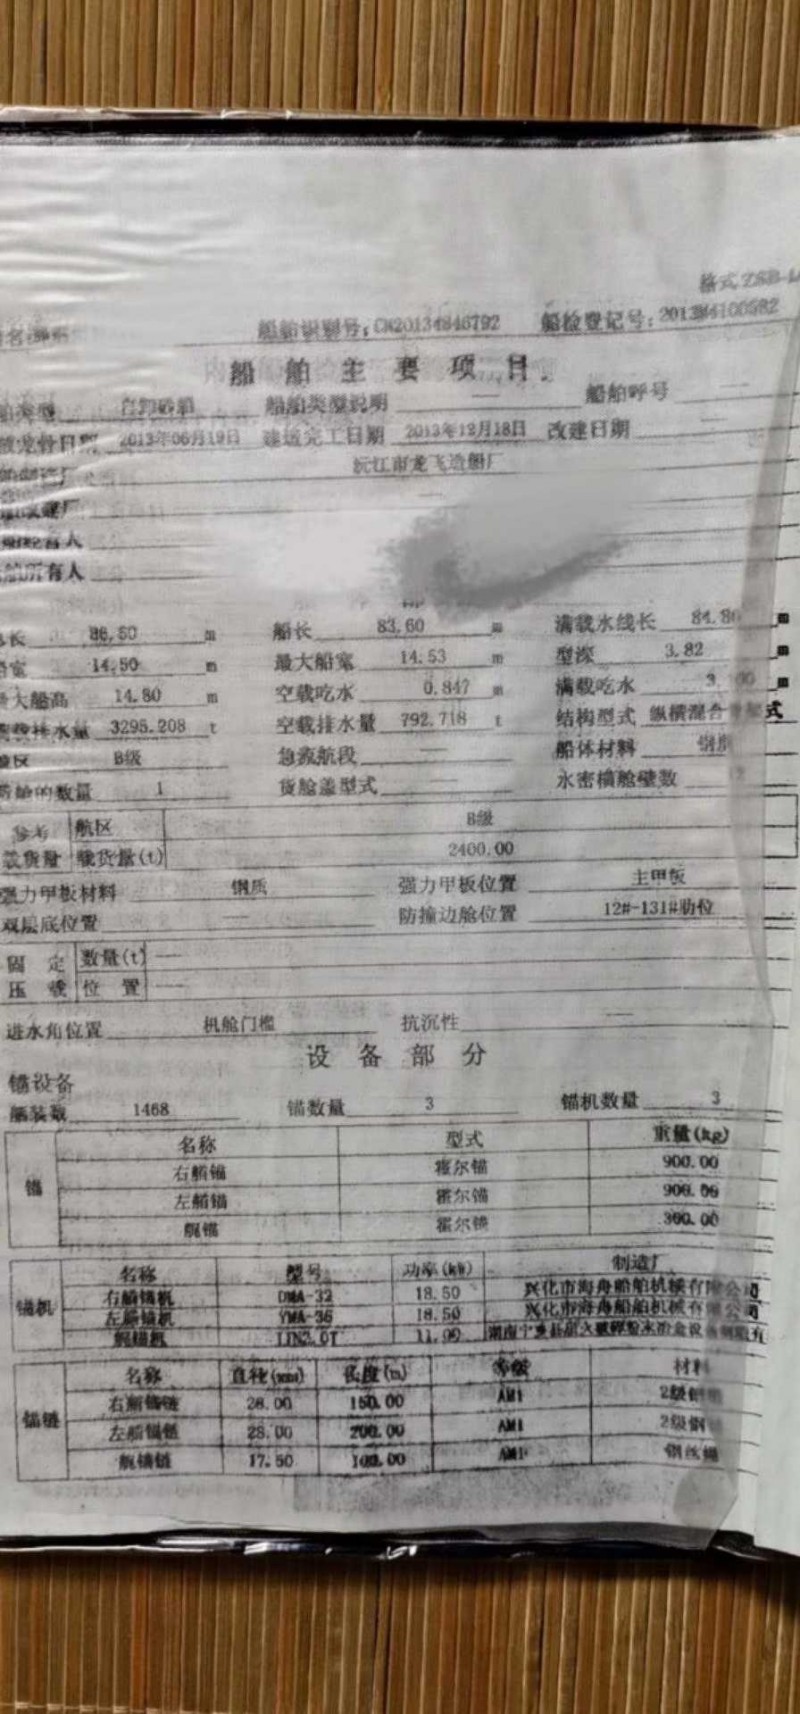 格式
船舶识别号:CN20134846792 船检登记号:2013M4100582
船舶主要项目
船类型 自卸砂船 船舶类型说明 — 船舶呼号 —
龙骨日期 2013年06月19日 建造完工日期 2013年12月18日 改建日期 —
沅江市龙飞造船厂
厂 —
人
所有人
长 86.80 m 船长 83.60 m 满载水线长 84.80 m
宽 14.50 m 最大船宽 14.53 m 型深 3.82 m
大船高 14.80 m 空载吃水 0.847 m 满载吃水 m
排水量 3295.208 t 空载排水量 792.718 t 结构型式 纵横混合 式
区 B级 急流航段 — 船体材料
货舱的数量 1 货舱盖型式 — 水密横舱壁数
参考 航区 B级
载货量 载货量(t) 2400.00
强力甲板材料 钢质 强力甲板位置 主甲板
双层底位置 — 防撞边舱位置 12#-131#肋位
固定 数量(t) —
压载 位置 —
进水角位置 机舱门槛 抗沉性 —
设备部分
锚设备
舾装数 1468 锚数量 3 锚机数量 3
锚 名称 型式 重量(kg)
右艏锚 霍尔锚 900.00
左艏锚 霍尔锚 900.00
艉锚 霍尔锚 300.00
锚机 名称 型号 功率(kW) 制造厂
右艏锚机 DMA-32 18.50 兴化市海舟船舶机械有限公司
左艏锚机 YMA-36 18.50 兴化市海舟船舶机械有限公司
艉锚机 11.00
锚链 名称 直径(mm) 长度(m) 等级 材料
右艏锚链 28.00 150.00 AM1 2级钢
左艏锚链 28.00 200.00 AM1 2级钢
艉锚链 17.50 100.00 AM1 钢丝绳